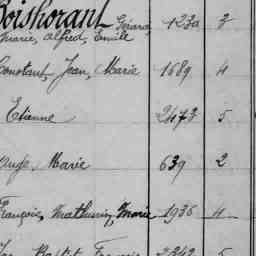 Boishorant Gérard, 1230 3
Marie, Alfred, Emile
Constant, Jean, Marie 1689 4
Etienne 2473 5
Ange, Marie 639 2
François, Mathurin, Marie 1936 4
Jean Baptist François 2342 5